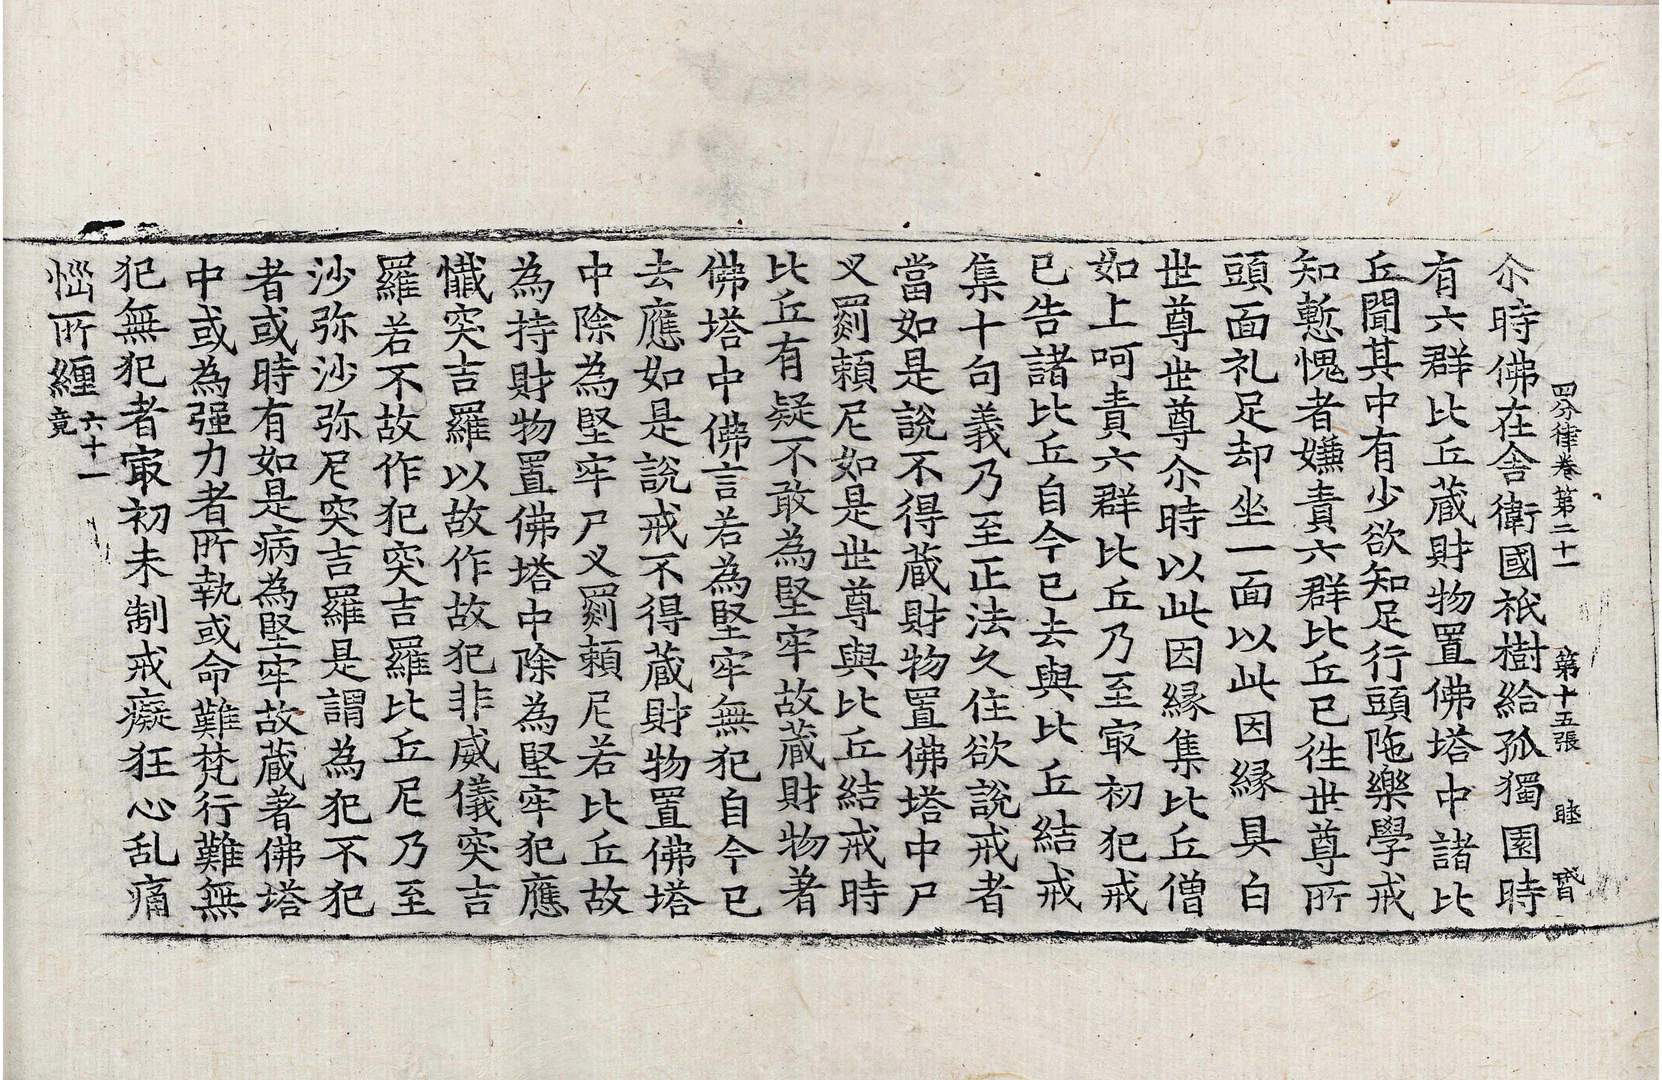 四分律卷第二十一 第十五張 睦
尒時佛在舍衛國祇樹給孤獨園時
有六群比丘蔵財物置佛塔中諸比
丘聞其中有少欲知足行頭陁樂學戒
知慙愧者嫌責六群比丘已徃世尊所
頭面礼足却坐一面以此因縁具白
世尊世尊尒時以此因縁集比丘僧
如上呵責六群比丘乃至㝡初犯戒
已告諸比丘自今已去與比丘結戒
集十句義乃至正法久住欲說戒者
當如是說不得蔵財物置佛塔中尸
叉罽頼尼如是世尊與比丘結戒時
比丘有疑不敢為堅牢故蔵財物著
佛塔中佛言若為堅牢無犯自今已
去應如是說戒不得蔵財物置佛塔
中除為堅牢尸叉罽頼尼若比丘故
為持財物置佛塔中除為堅牢犯應
懺突吉羅以故作故犯非威儀突吉
羅若不故作犯突吉羅比丘尼乃至
沙弥沙弥尼突吉羅是謂為犯不犯
者或時有如是病為堅牢故蔵著佛塔
中或為强力者所執或命難梵行難無
犯無犯者㝡初未制戒癡狂心乱痛
惱所纏六十一竟